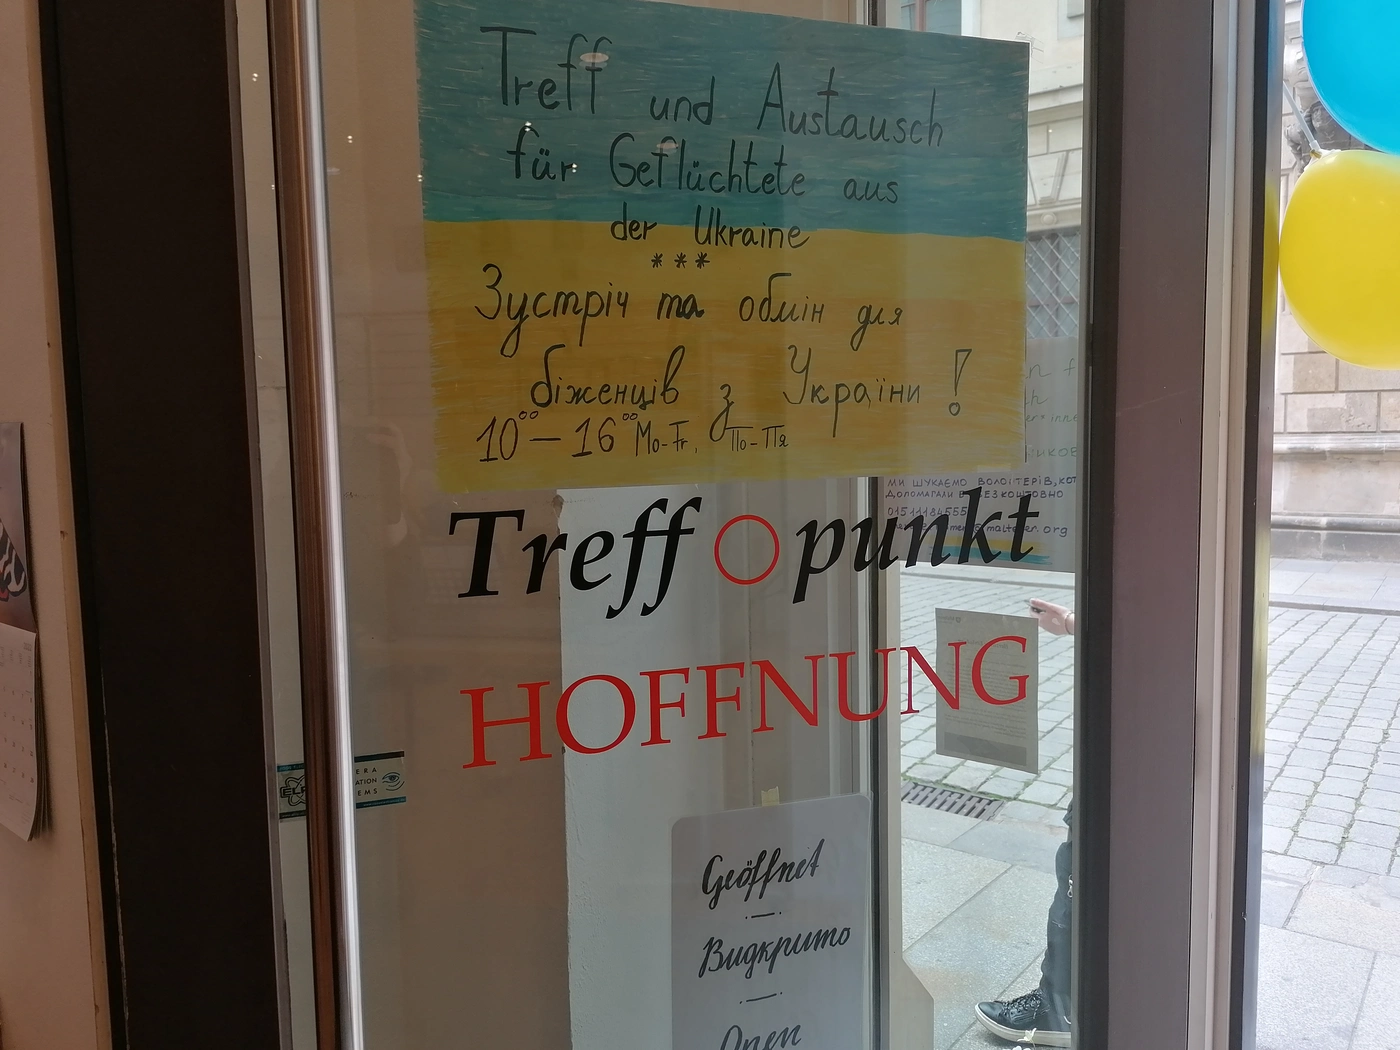 Treff und Austausch
für Geflüchtete aus
der Ukraine
***
Зустріч та обмін для
біженців з України!
10⁰⁰ – 16⁰⁰ Mo-Fr, По-Пя
МИ ШУКАЄМО ВОЛОНТЕРІВ, КОТ
ДОПОМАГАЛИ БЕЗКОШТОВНО
Treffpunkt
HOFFNUNG
ERA
ATION
EMS
Geöffnet
Видкрито
Open